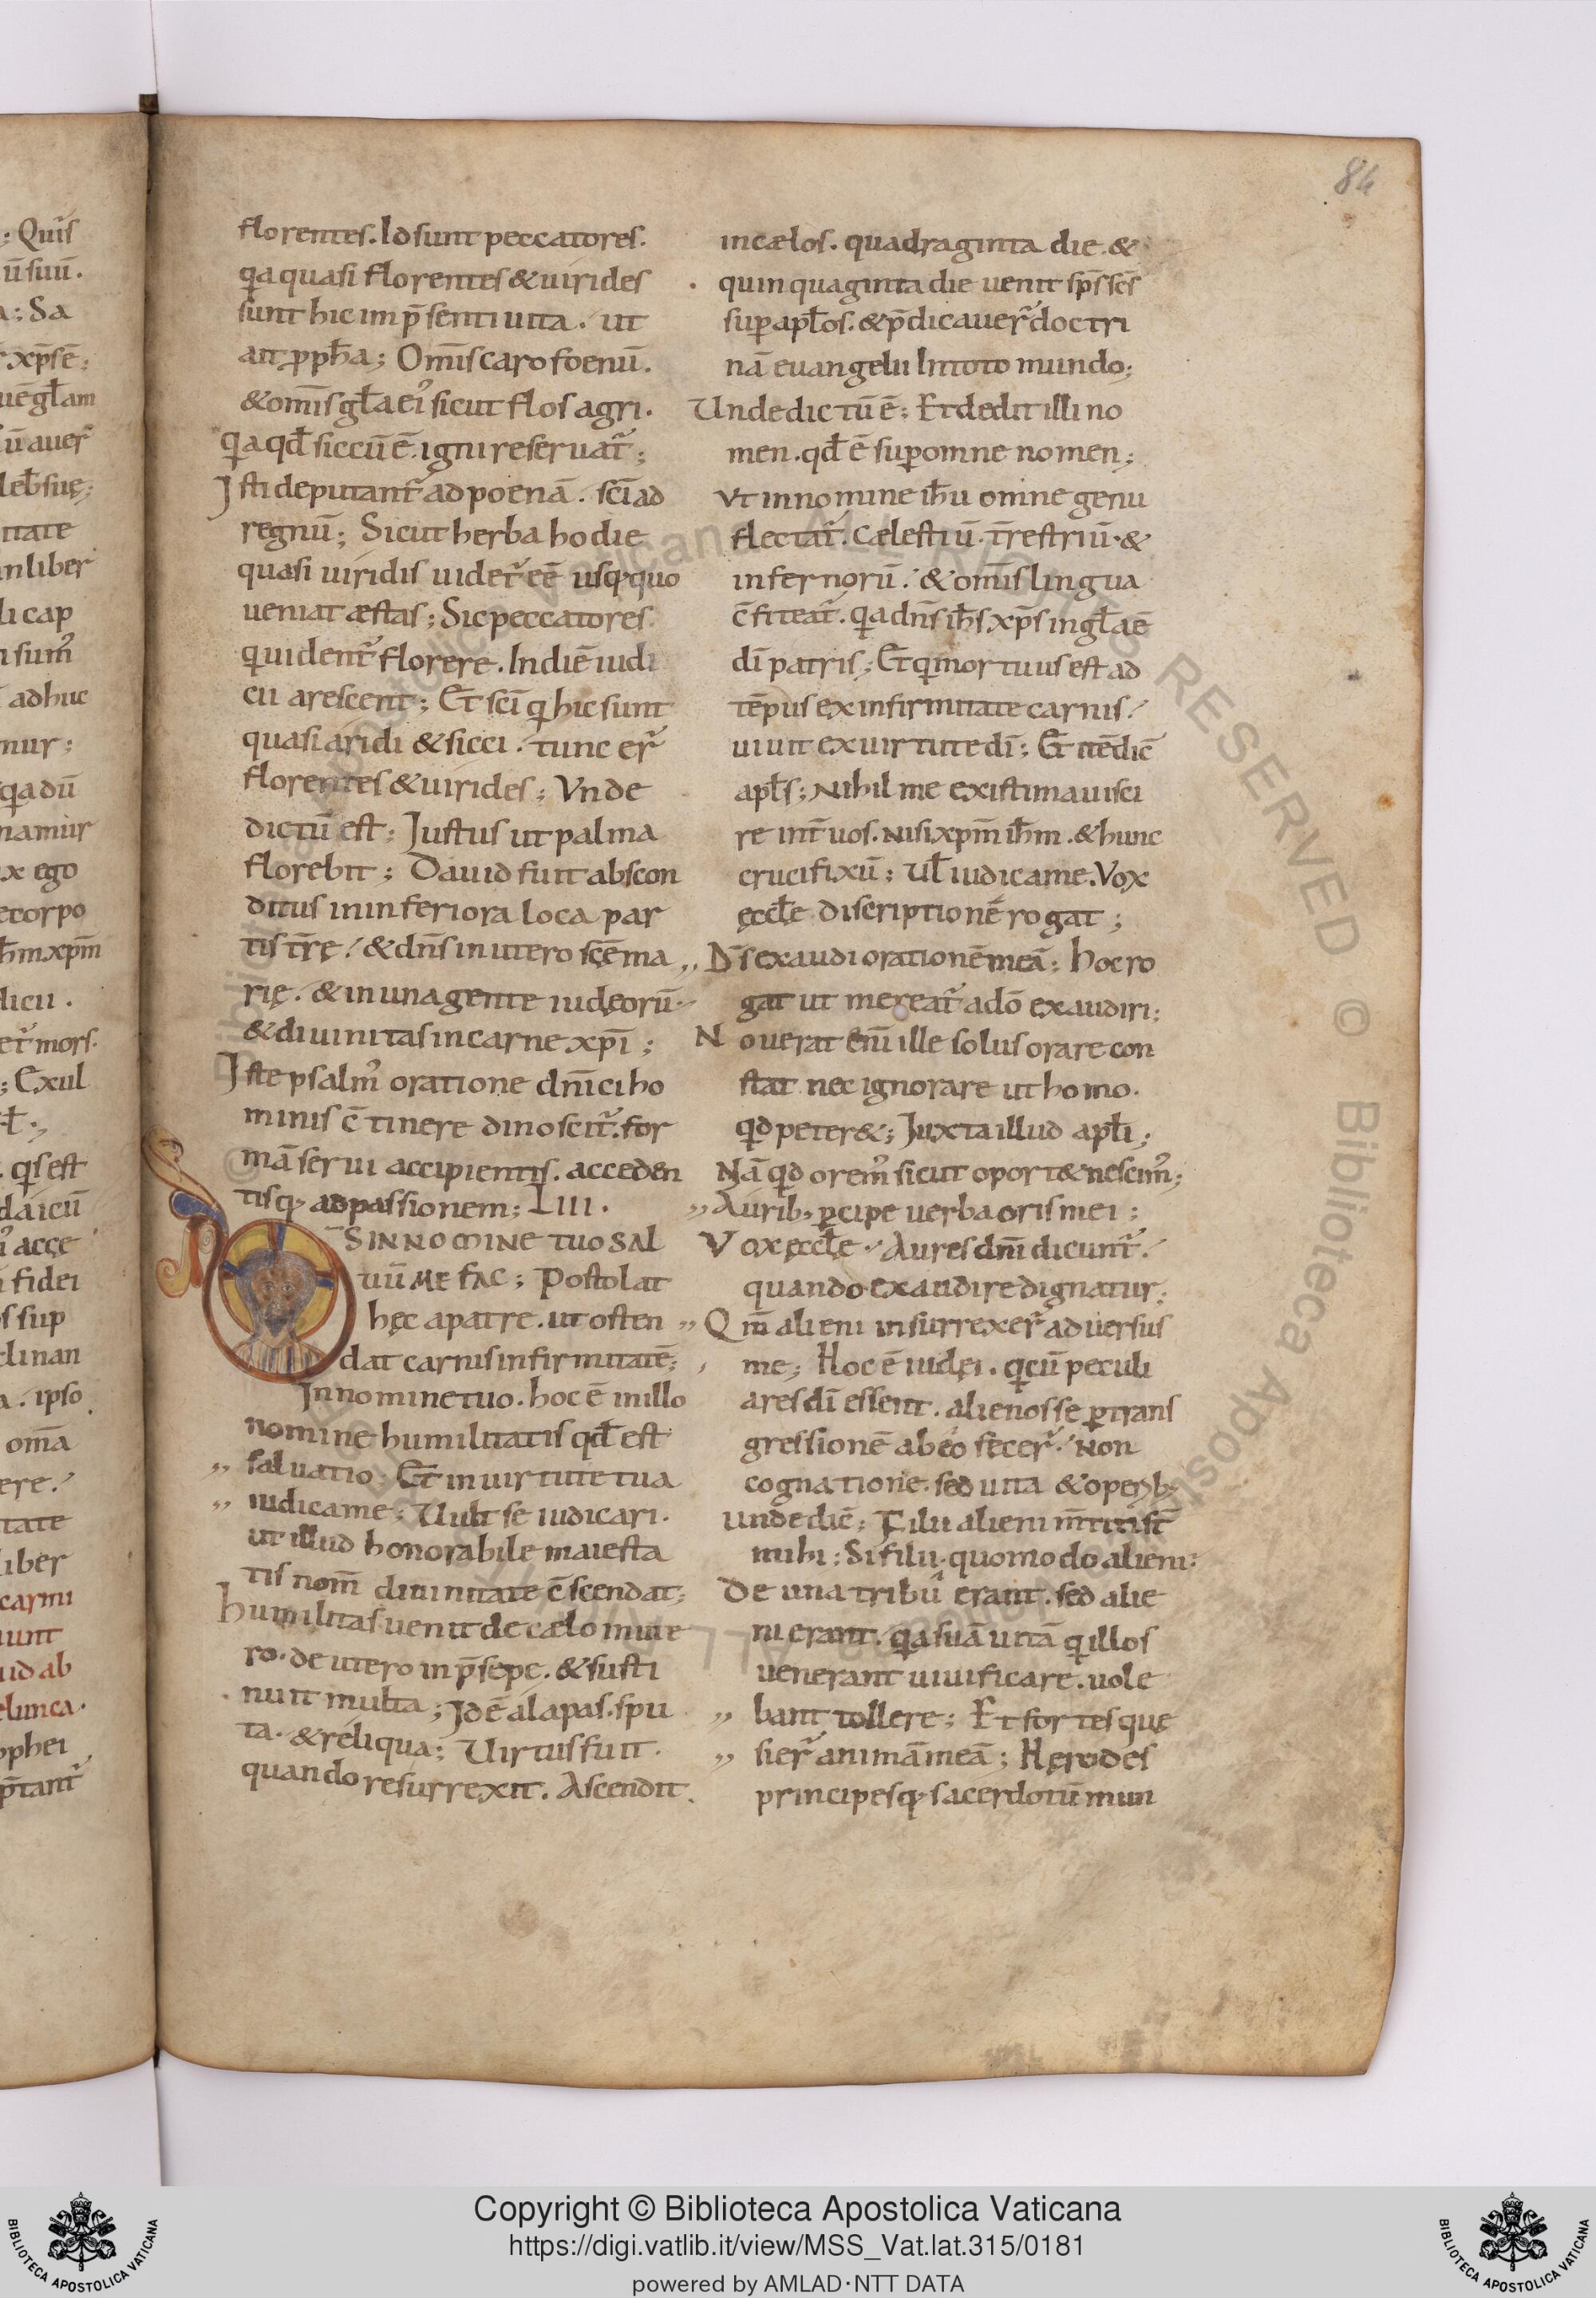 84
florentes. Id sunt peccatores.
qa quasi florentes & uirides
sunt hic in p̄senti uita. ut
ait pph̄a; Om̄is caro foenū.
& om̄is gl̄a ei᾽ sicut flos agri.
Qa qd̄ siccū ē. igni reseruat᷑;
Isti deputant᷑ ad poenā. sc̄i ad
regnū; Sicut herba hodie
quasi uiridis uidet᷑ eē usq; quo
ueniat æstas; Sic peccatores.
qui uident᷑ florere. In diē iudi
cii arescent; Et sc̄i q hic sunt
quasi aridi & sicci. tunc er᷑
florentes & uirides; Vnde
dictū est; Iustus ut palma
florebit; Dauid fuit abscon
ditus in inferiora loca par
tis t̄rę. & dn̄s in utero sc̄ę ma
rię. & in una gente iudęorū.
& diuinitas in carne xp̄i;
Iste psalm᾽ oratione dn̄ici ho
minis c̄tinere dinoscit᷑. for
mā serui accipientis. acceden
tisq; ad passionem; LIII.
D̄S IN NOMINE TUO SAL
uū ME FAC; Postolat
hęc a patre. ut osten
dat carnis infirmitatē;
In nomine tuo. hoc ē in illo
nomine humilitatis qd̄ est
„ saluatio. Et in uirtute tua
„ iudica me; Uult se iudicari.
ut illud honorabile maiesta
tis nom̄ diuinitate c̄scendat;
Humilitas uenit de cælo in ute
ro. de utero in p̄sepe. & susti
nuit multa; Id ē alapas. spu
ta. & reliqua; Uirtus fuit.
quando resurrexit. Ascendit
in cælos. quadraginta die. &
quinquaginta die uenit sp̄s sc̄s
sup apl̄os. & p̄dicauer᷑ doctri
nā euangelii In toto mundo;
Unde dictū ē; Et dedit illi no
men. qd̄ ē sup omne nomen;
Vt in nomine ih̄u omne genu
flectat᷑. Cælestiū. t̄restriū. &
infernorū. & om̄is lingua
c̄fiteat᷑. qa dn̄s ih̄s xp̄s in gl̄a ē
dī patris; Et q mortuus est ad
tēpus ex infirmitate carnis.
uiuit ex uirtute dī; Et itē dic̄
apl̄s; Nihil me existimaui sci
re int̄ uos. Nisi xpm̄ ih̄m. & hunc
crucifixū; Ul̄ iudica me. Vox
ęccl̄e discriptionē rogat;
„ D̄s exaudi orationē meā; Hoc ro
gat ut mereat᷑ ad dō exaudiri;
Nouerat enī ille solus orare con
stat nec ignorare ut homo.
qd peter&; Iuxta illud apl̄i;
Nā qd orem᾽ sicut oport& nescim᾽;
„ Aurib; pcipe uerba oris mei;
Vox ęccl̄e. Aures dn̄i dicunt᷑.
quando exaudire dignatur;
„ Qm̄ alieni insurrexer᷑ aduersus
me; Hoc ē iudęi. q cū peculi
ares dī essent. alienos se p trans
gressionē ab eo fecer᷑. Non
cognatione. sed uita & operib;
Unde dic̄; Filii alieni m̄titi s̄t
mihi; Si filii. quomodo alieni;
De una tribu erant. sed alie
ni erant. qa suā uitā q illos
uenerant uiuificare. uole
„ bant tollere; Et fortes quę
„ sier᷑ animā meā; Hęrodes
principesq; sacerdotū mun
Copyright © Biblioteca Apostolica Vaticana
https://digi.vatlib.it/view/MSS_Vat.lat.315/0181
powered by AMLAD·NTT DATA